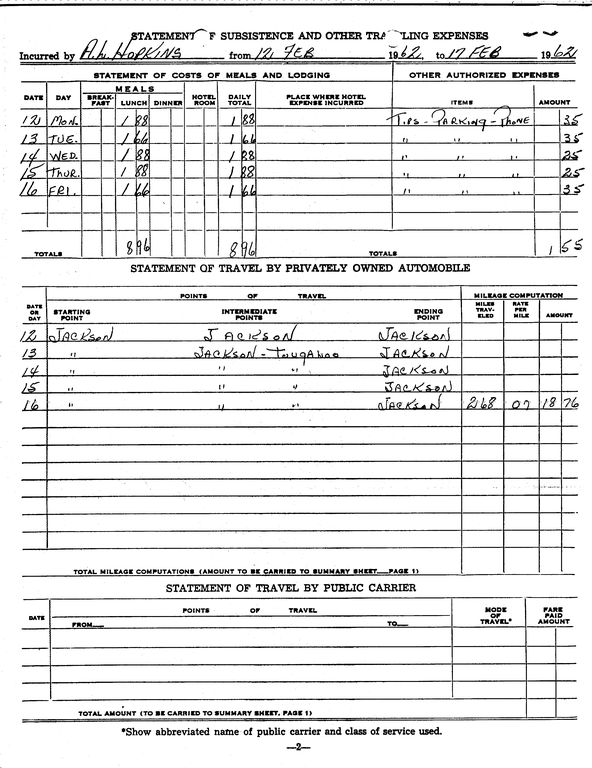 STATEMENT F SUBSISTENCE AND OTHER TRA LING EXPENSES
Incurred by A.L. HOPKINS from 12 FEB 1962, to 17 FEB 1962
STATEMENT OF COSTS OF MEALS AND LODGING OTHER AUTHORIZED EXPENSES
MEALS
DATE DAY BREAK-FAST LUNCH DINNER HOTEL ROOM DAILY TOTAL PLACE WHERE HOTEL EXPENSE INCURRED ITEMS AMOUNT
12 MON. 1 88 1 88 TIPS - PARKING - PHONE 35
13 TUE. 1 66 1 66 " " " 35
14 WED. 1 88 1 88 " " " 25
15 THUR. 1 88 1 88 " " " 25
16 FRI. 1 66 1 66 " " " 35
TOTALS 8 96 8 96 TOTALS 1 55
STATEMENT OF TRAVEL BY PRIVATELY OWNED AUTOMOBILE
DATE OR DAY POINTS OF TRAVEL MILEAGE COMPUTATION
STARTING POINT INTERMEDIATE POINTS ENDING POINT MILES TRAV-ELED RATE PER MILE AMOUNT
12 JACKSON JACKSON JACKSON
13 " JACKSON - TOUGALOO JACKSON
14 " " " JACKSON
15 " " " JACKSON
16 " " " JACKSON 268 07 18 76
TOTAL MILEAGE COMPUTATIONS (AMOUNT TO BE CARRIED TO SUMMARY SHEET PAGE 1)
STATEMENT OF TRAVEL BY PUBLIC CARRIER
DATE POINTS OF TRAVEL MODE OF TRAVEL* FARE PAID AMOUNT
FROM TO
TOTAL AMOUNT (TO BE CARRIED TO SUMMARY SHEET, PAGE 1)
*Show abbreviated name of public carrier and class of service used.
—2—